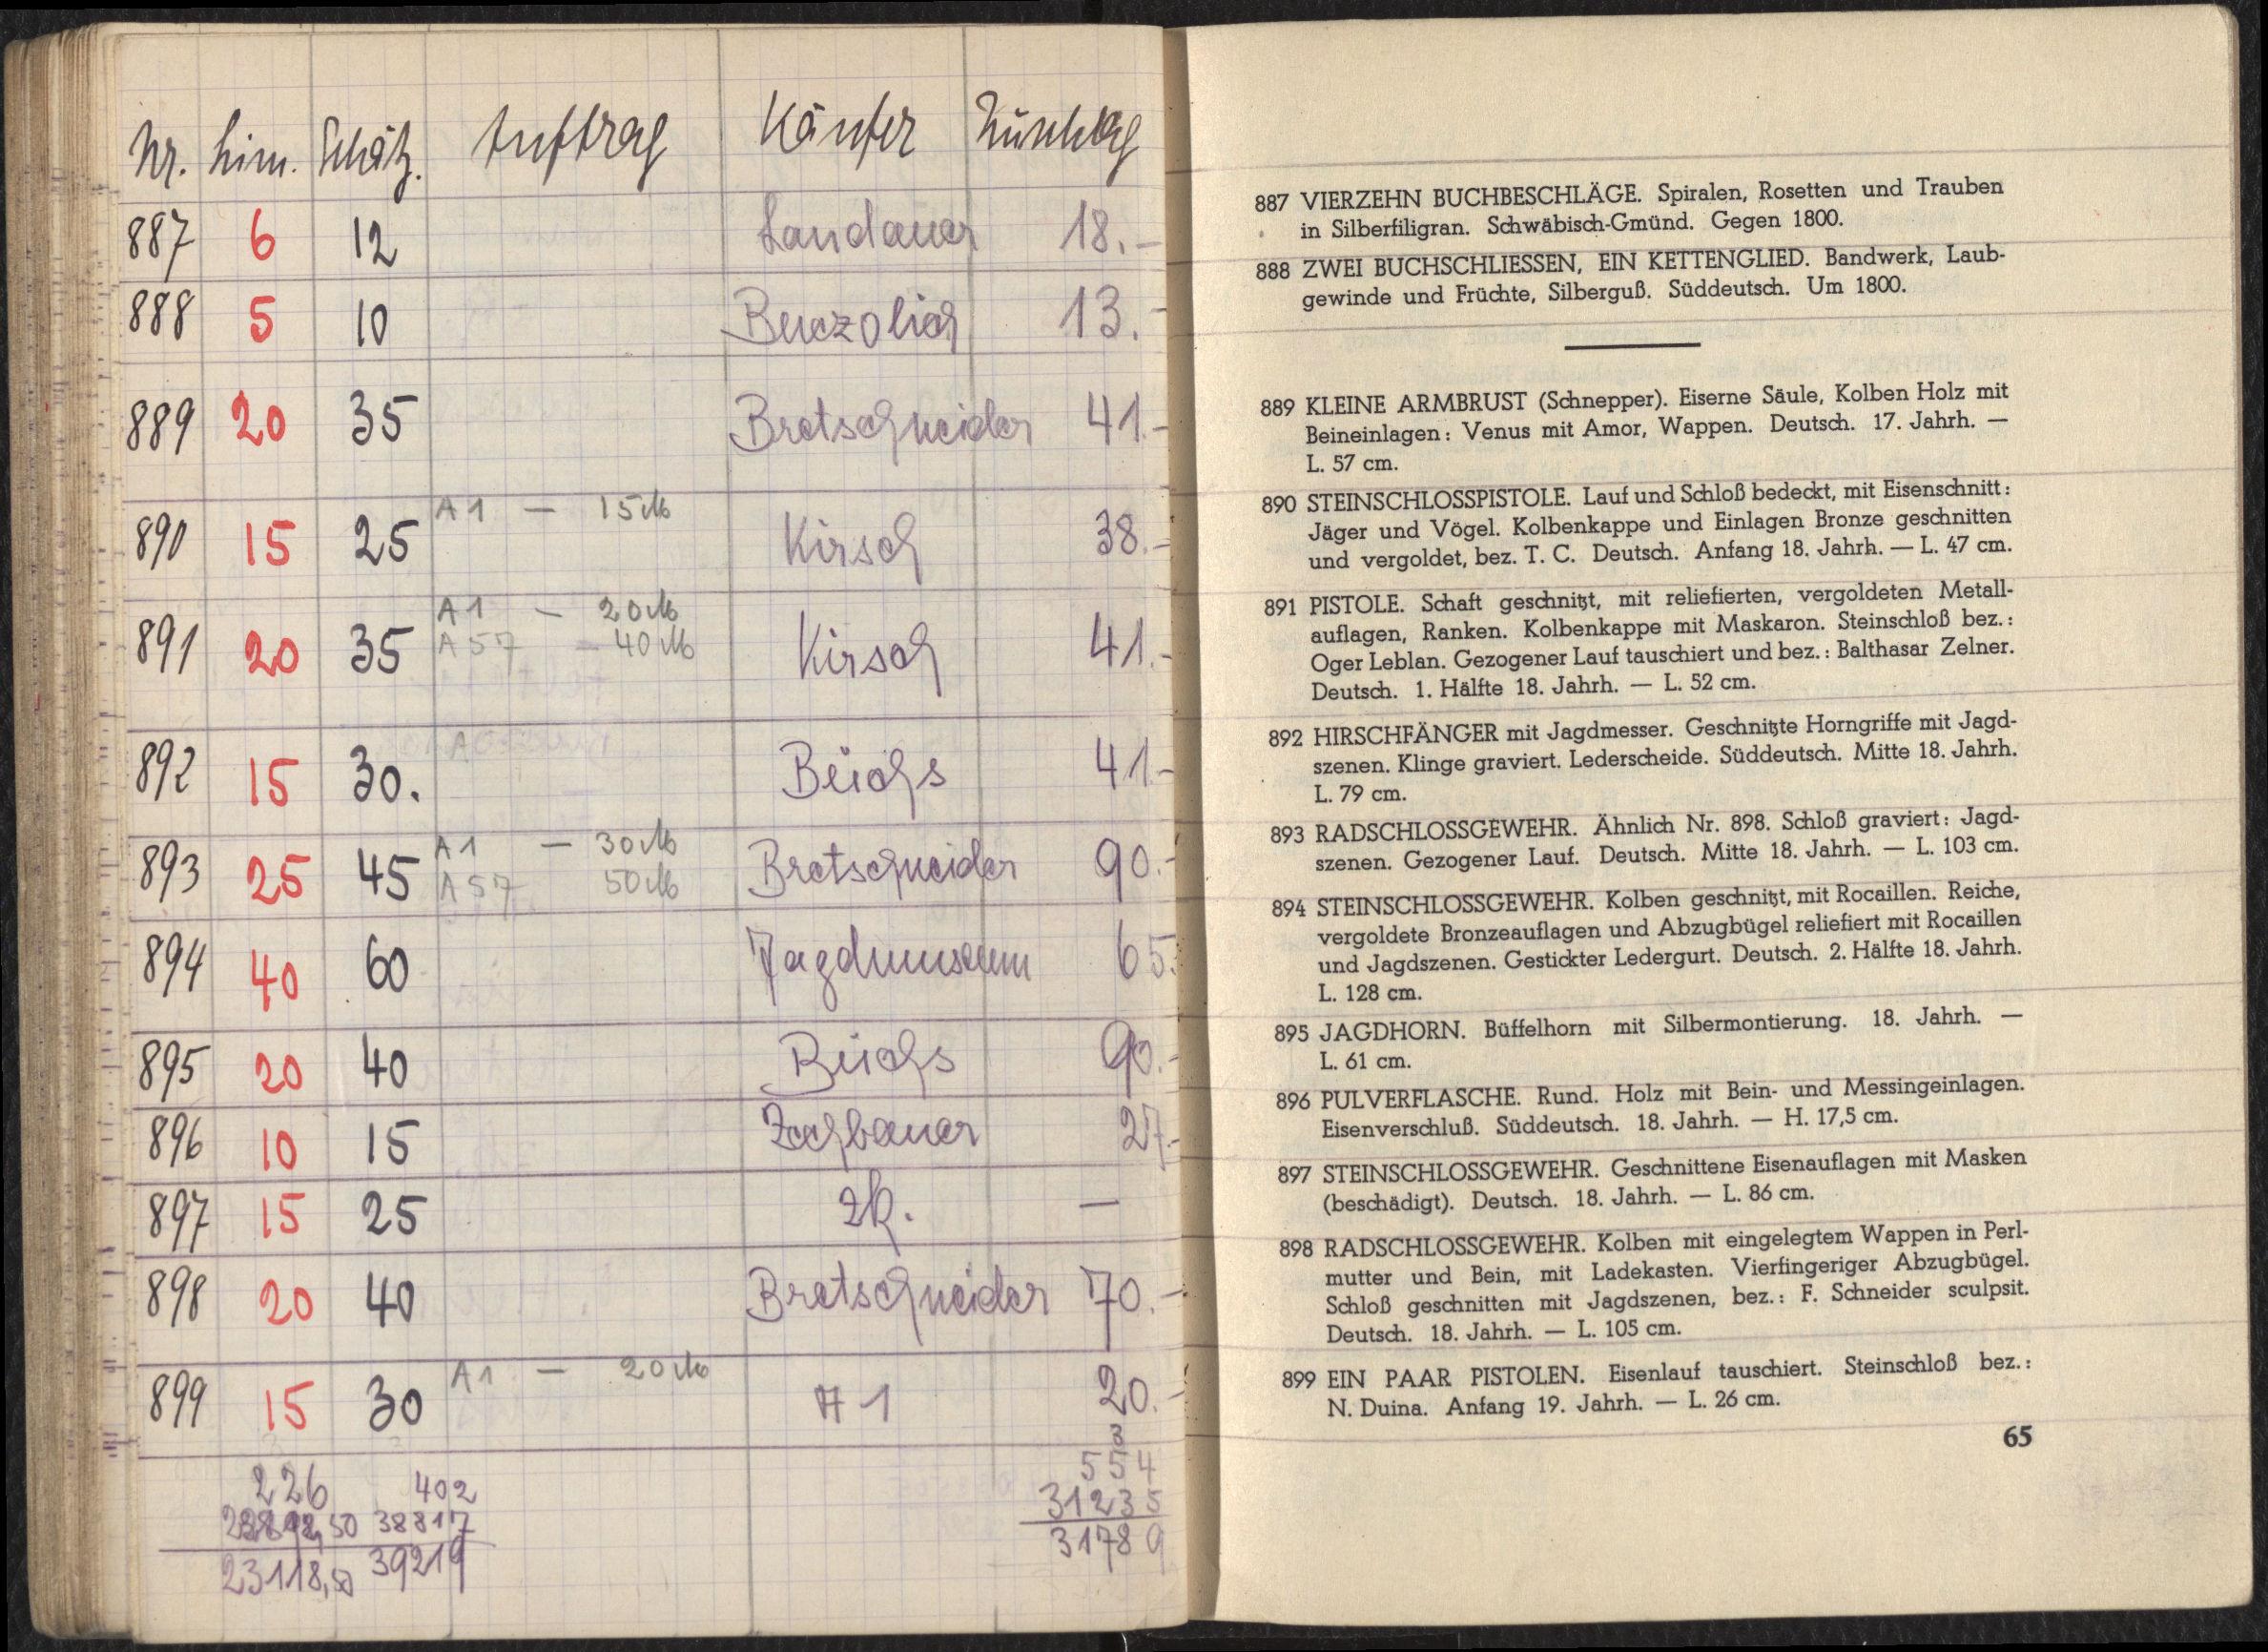 Nr. Lim. Schätz. Auftrag Käufer Zuschlag
887 6 12 Landauer 18.-
888 5 10 13.-
889 20 35 Bretschneider 41.-
890 15 25 A1 — 15 M Kirsch 38.-
891 20 35 A1 — 20 M Kirsch 41.-
A 57 — 40 M
892 15 30. 41.-
893 25 45 A1 — 30 M Bretschneider 90.-
A 57 50 M
894 40 60 Jagdmuseum 65.
895 20 40 90.-
896 10 15 Zechbauer 27.-
897 15 25 zk. —
898 20 40 Bretschneider 70.-
899 15 30 A1 — 20 M A 1 20.-
3
226 402 554
38817 31235
23118,50 39219 31789
887 VIERZEHN BUCHBESCHLÄGE. Spiralen, Rosetten und Trauben
in Silberfiligran. Schwäbisch-Gmünd. Gegen 1800.
888 ZWEI BUCHSCHLIESSEN, EIN KETTENGLIED. Bandwerk, Laub-
gewinde und Früchte, Silberguß. Süddeutsch. Um 1800.
889 KLEINE ARMBRUST (Schnepper). Eiserne Säule, Kolben Holz mit
Beineinlagen: Venus mit Amor, Wappen. Deutsch. 17. Jahrh. —
L. 57 cm.
890 STEINSCHLOSSPISTOLE. Lauf und Schloß bedeckt, mit Eisenschnitt:
Jäger und Vögel. Kolbenkappe und Einlagen Bronze geschnitten
und vergoldet, bez. T. C. Deutsch. Anfang 18. Jahrh. — L. 47 cm.
891 PISTOLE. Schaft geschnitzt, mit reliefierten, vergoldeten Metall-
auflagen, Ranken. Kolbenkappe mit Maskaron. Steinschloß bez.:
Oger Leblan. Gezogener Lauf tauschiert und bez.: Balthasar Zelner.
Deutsch. 1. Hälfte 18. Jahrh. — L. 52 cm.
892 HIRSCHFÄNGER mit Jagdmesser. Geschnitzte Horngriffe mit Jagd-
szenen. Klinge graviert. Lederscheide. Süddeutsch. Mitte 18. Jahrh.
L. 79 cm.
893 RADSCHLOSSGEWEHR. Ähnlich Nr. 898. Schloß graviert: Jagd-
szenen. Gezogener Lauf. Deutsch. Mitte 18. Jahrh. — L. 103 cm.
894 STEINSCHLOSSGEWEHR. Kolben geschnitzt, mit Rocaillen. Reiche,
vergoldete Bronzeauflagen und Abzugbügel reliefiert mit Rocaillen
und Jagdszenen. Gestickter Ledergurt. Deutsch. 2. Hälfte 18. Jahrh.
L. 128 cm.
895 JAGDHORN. Büffelhorn mit Silbermontierung. 18. Jahrh. —
L. 61 cm.
896 PULVERFLASCHE. Rund. Holz mit Bein- und Messingeinlagen.
Eisenverschluß. Süddeutsch. 18. Jahrh. — H. 17,5 cm.
897 STEINSCHLOSSGEWEHR. Geschnittene Eisenauflagen mit Masken
(beschädigt). Deutsch. 18. Jahrh. — L. 86 cm.
898 RADSCHLOSSGEWEHR. Kolben mit eingelegtem Wappen in Perl-
mutter und Bein, mit Ladekasten. Vierfingeriger Abzugbügel.
Schloß geschnitten mit Jagdszenen, bez.: F. Schneider sculpsit.
Deutsch. 18. Jahrh. — L. 105 cm.
899 EIN PAAR PISTOLEN. Eisenlauf tauschiert. Steinschloß bez.:
N. Duina. Anfang 19. Jahrh. — L. 26 cm.
65